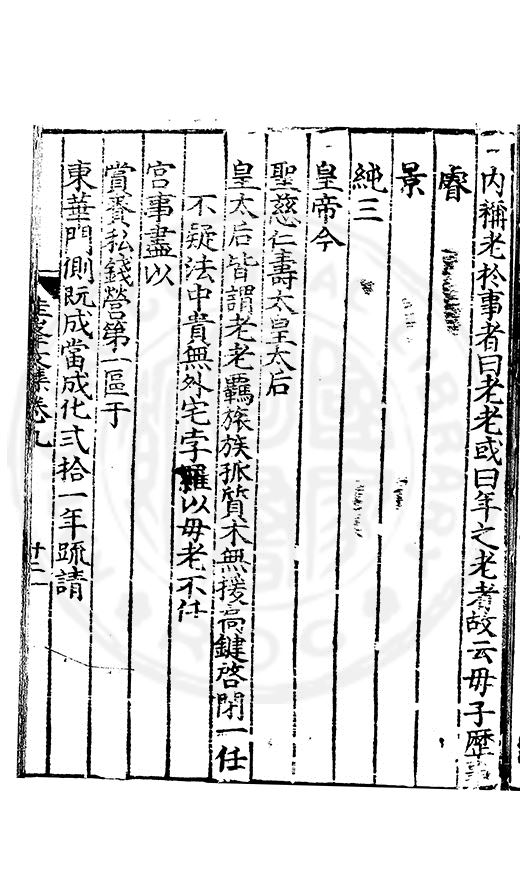 内稱老於事者曰老老或曰年之老者故云母子歷事
睿
景
純三
皇帝今
聖慈仁壽太皇太后
皇太后皆謂老老羈旅族孤質木無援高鍵啓閉一任
不疑法中貴無外宅孛羅以母老不任
宮事盡以
賞賚私錢營第一區于
東華門側既成當成化弍拾一年疏請
文集卷九
十二